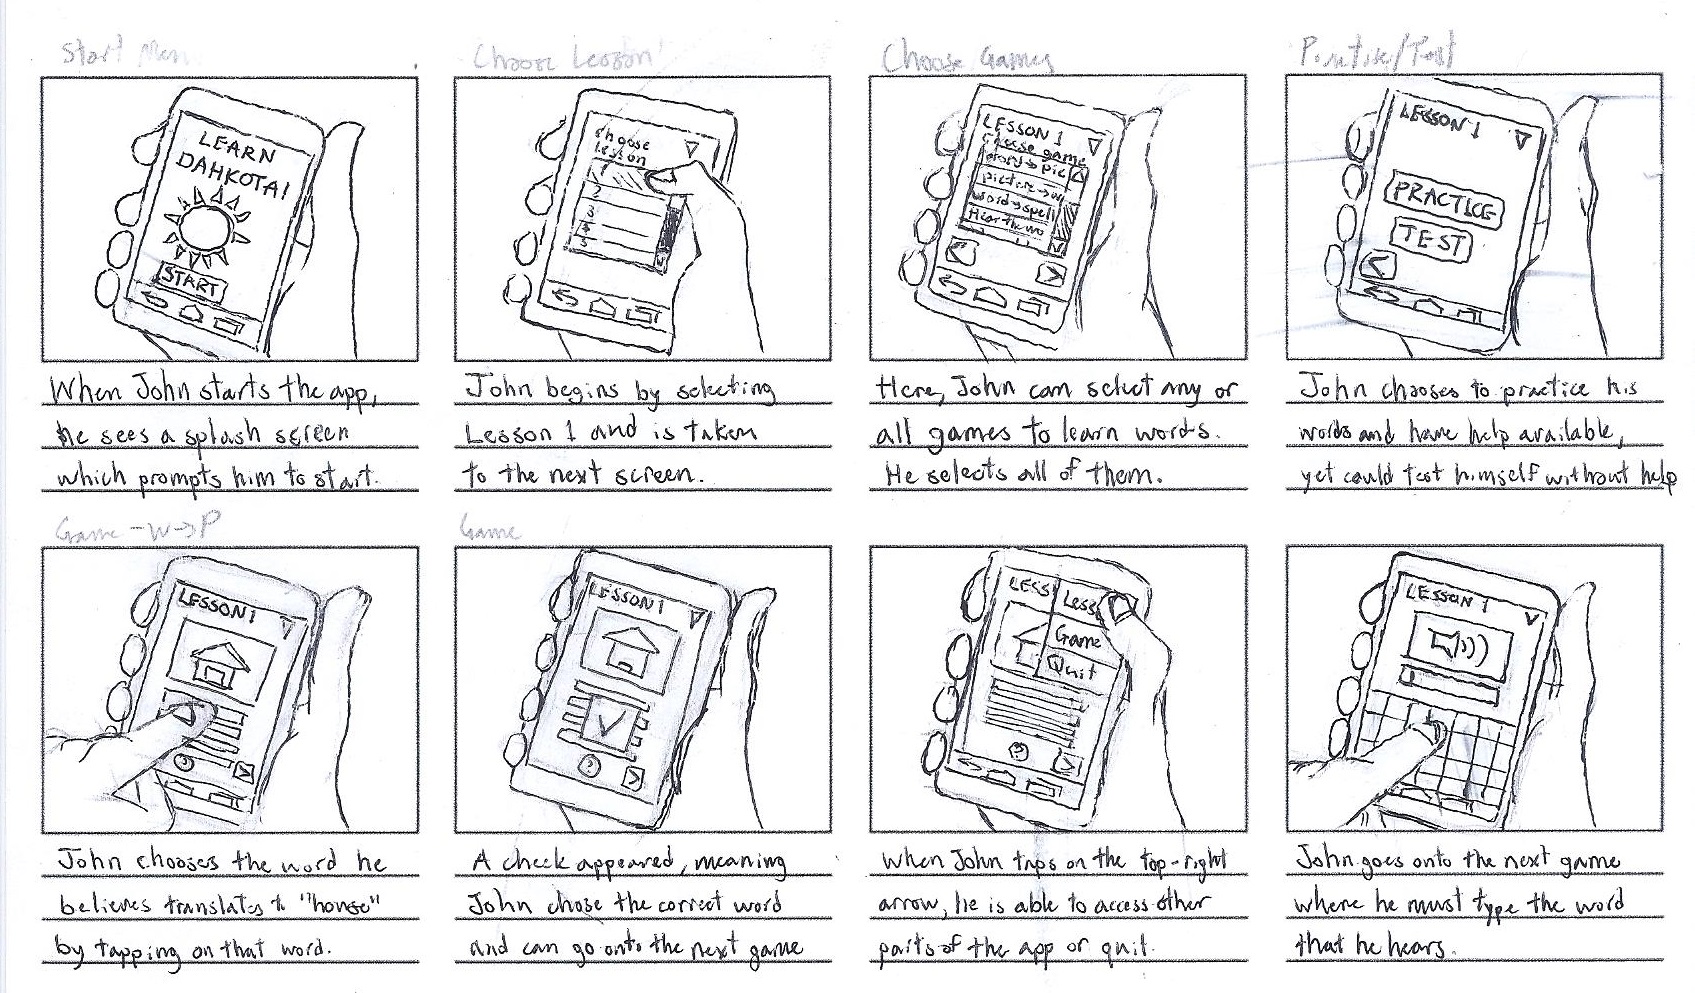 Start Men
Choose Lesson
Choose Games
Practise/Test
LEARN
DAHKOTA!
START
choose
lesson
1
2
3
4
5
LESSON 1
Choose game
word → pic
picture → w
word → spell
Hear the wo
LESSON 1
PRACTICE
TEST
When John starts the app,
he sees a splash screen
which prompts him to start.
John begins by selecting
Lesson 1 and is taken
to the next screen.
Here, John can select any or
all games to learn words.
He selects all of them.
John chooses to practice his
words and have help available,
yet could test himself without help
Game - W→P
Game
LESSON 1
?
LESSON 1
?
LESS
Less
Game
Quit
?
LESSON 1
John chooses the word he
believes translates to "house"
by tapping on that word.
A check appeared, meaning
John chose the correct word
and can go onto the next game
When John taps on the top-right
arrow, he is able to access other
parts of the app or quit.
John goes onto the next game
where he must type the word
that he hears.